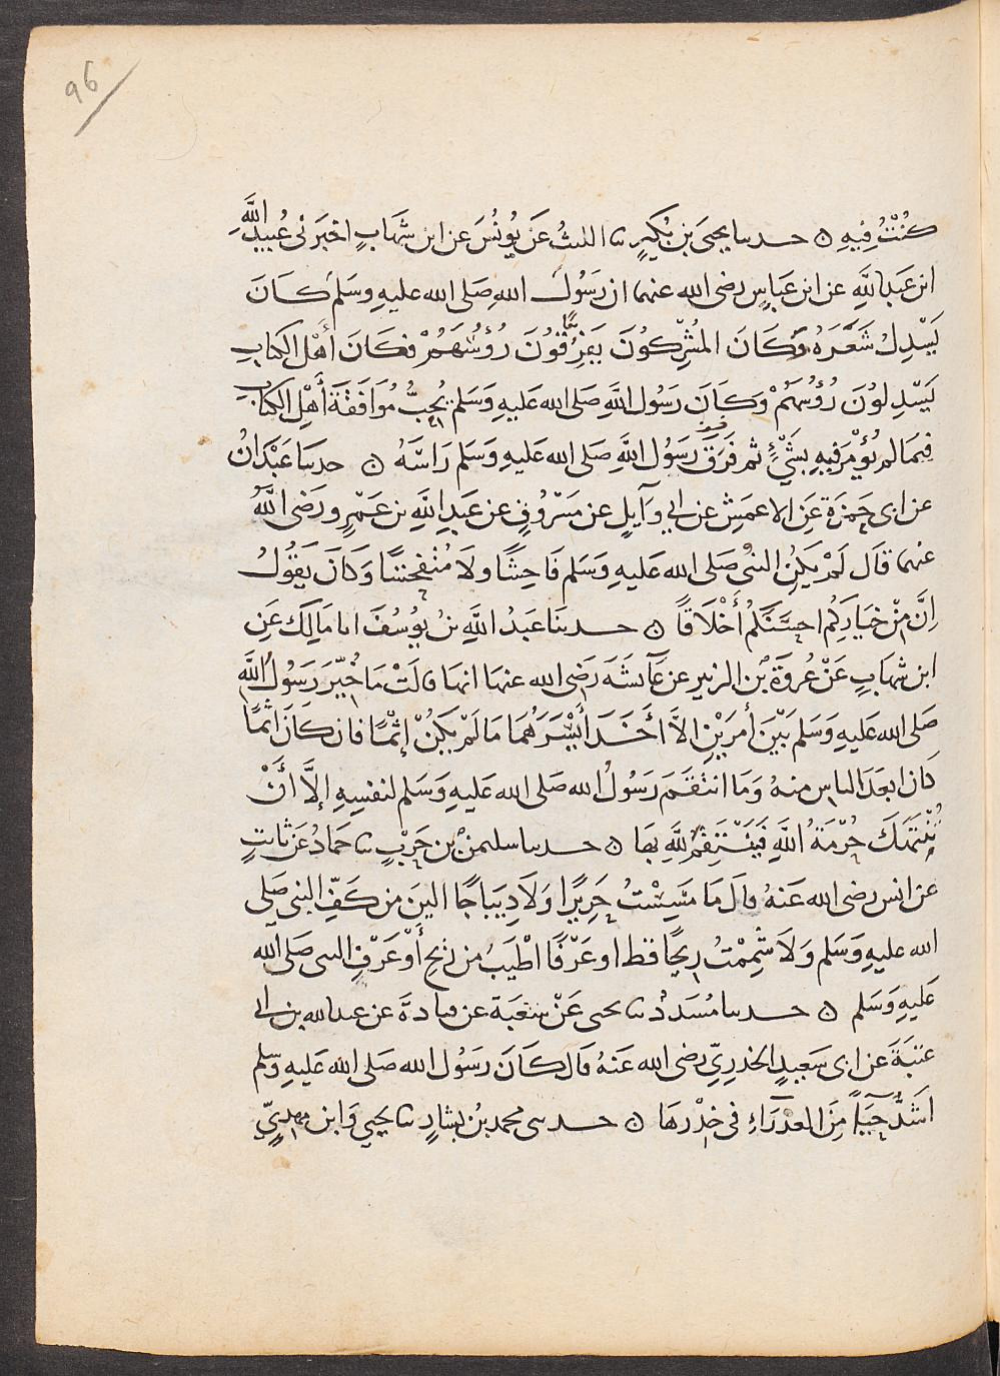 96
كُنْتُ فِيهِ ۞ حدثنا يحيَى بنِ بُكَيرٍ ثنا الليثُ عَن يُونُسَ عن ابن شهَابٍ اخبَرَنى عُبيد اللَّهِ
ابن عَبدِ اللَّهِ عن ابن عَبَاسٍ رضى الله عنهما ان رَسُولَ اللهِ صَلى الله عليهِ وَسَلم كَانَ
يَسْدِلُ شَعَرَهُ وَكَانَ المُشْرِكُونَ يَفرِقُونَ رُؤُسَهُمْ فكَانَ أَهْل الكِتابِ
يَسْدِلُونَ رُؤُسَهُمْ وَكَانَ رَسُول اللَّهِ صَلى الله عَليهِ وَسَلم يُحِبُّ مُوَافَقَةَ أَهْلِ الكِتابِ
فِيمَا لم يُؤمَر فِيهِ بشَئٍ ثم فَرَقَ رَسُول اللَّهِ صَلى الله عَليهِ وَسَلم رَاسَهُ ۞ حدثنا عَبْدَانُ
عن ابى حَمزَةَ عَنِ الاعمَشِ عن ابي وَآيلٍ عن مَسْرُوقٍ عن عَبدِ اللَّهِ بن عَمْرٍو رَضى اللَّهُ
عنهما قَال لَمْ يَكُنِ النبىُّ صَلى الله عَليهِ وَسَلم فَاحِشًا ولَا مُتفحِشًا وَكَانَ يَقُولُ
اِنَّ مِنْ خيَارِكُم احسَنَكُم أَخْلَاقًا ۞ حدثنَا عَبدُ اللَّهِ بنُ يُوسُفَ انا مَالِك عَنِ
ابن شهَابٍ عَنْ عُروَةَ بْن الزبير عن عَآئشَة رَضى الله عنهَا انهَا قَالَتْ مَا خُيِّرَ رَسُولُ اللَّهِ
صَلى الله عَليهِ وَسَلم بَيْنَ أَمرَيْنِ الاَّ أَخَذَ أَيْسَرَهُمَا مَا لَمْ يَكُنْ إثمًا فان كَانَ اثمًا
كَان ابعَدَ الناسِ منهُ وَمَا انتَقَمَ رَسُولُ الله صَلى الله عَليهِ وَسَلم لنفسِهِ إلَّا أَنْ
تُنْتَهَكَ حُرْمَةُ اللَّهِ فَيَنْتَقِمُ للَّهِ بهَا ۞ حدثنا سليمن بْن حَرْبٍ ثنا حمَادُ عَن ثابتٍ
عن انس رضى الله عَنهُ قَالَ مَا مَسِسْتُ حَرِيرًا وَلَا دِيبَاجًا اليَنَ من كَفِّ النبى صَلى
الله عليهِ وَسَلم وَلَا شَمِمْتُ رِيحًا قط او عَرْفًا اطْيَبَ من ريحِ أَوْ عَرْفِ النبى صَلى الله
عَليهِ وَسَلم ۞ حدثنا مُسَدَّدُ ثنا يحيى عَنْ شعبَة عن قتادَةَ عن عبد الله بن ابي
عتبَةَ عن ابى سَعِيدٍ الخدرِيّ رضى الله عَنهُ قَال كَانَ رَسُول الله صَلى الله عَليهِ وسلم
اشَدَّ حَيَاءً مِنَ العذرَاءِ فى خِدْرهَا ۞ حدثنى محمد بْن بشارٍ ثنا يحيي وَابن مهدِيّ